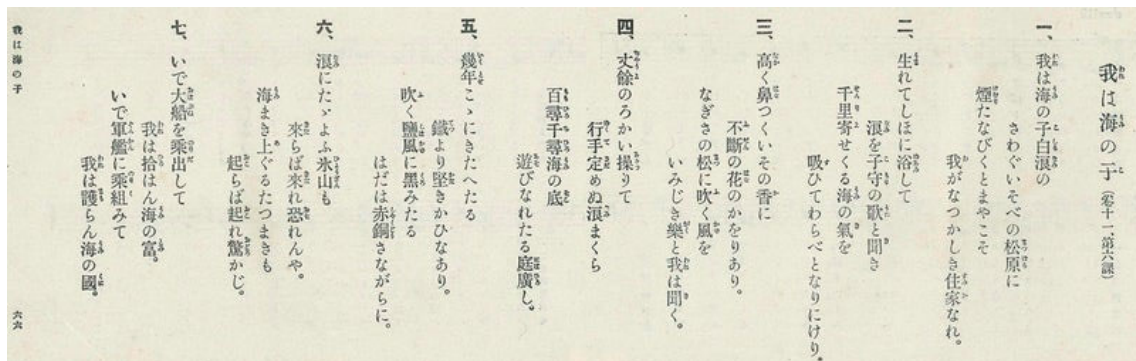 我は海の子(卷十一、第六課)
一、我は海の子白浪の
さわぐいそべの松原に
煙たなびくとまやこそ
我がなつかしき住家なれ。
二、生れてしほに浴して
浪を子守の歌と聞き
千里寄せくる海の氣を
吸ひてわらべとなりにけり。
三、高く鼻つくいその香に
不斷の花のかをりあり。
なぎさの松に吹く風を
いみじき樂と我は聞く。
四、丈餘のろかい操りて
行手定めぬ浪まくら
百尋千尋海の底
遊びなれたる庭廣し。
五、幾年こゝにきたへたる
鐵より堅きかひなあり。
吹く鹽風に黑みたる
はだは赤銅さながらに。
六、浪にたゞよふ氷山も
來らば來れ恐れんや。
海まき上ぐるたつまきも
起らば起れ驚かじ。
七、いで大船を乘出して
我は拾はん海の富。
いで軍艦に乘組みて
我は護らん海の國。
我は海の子
六六